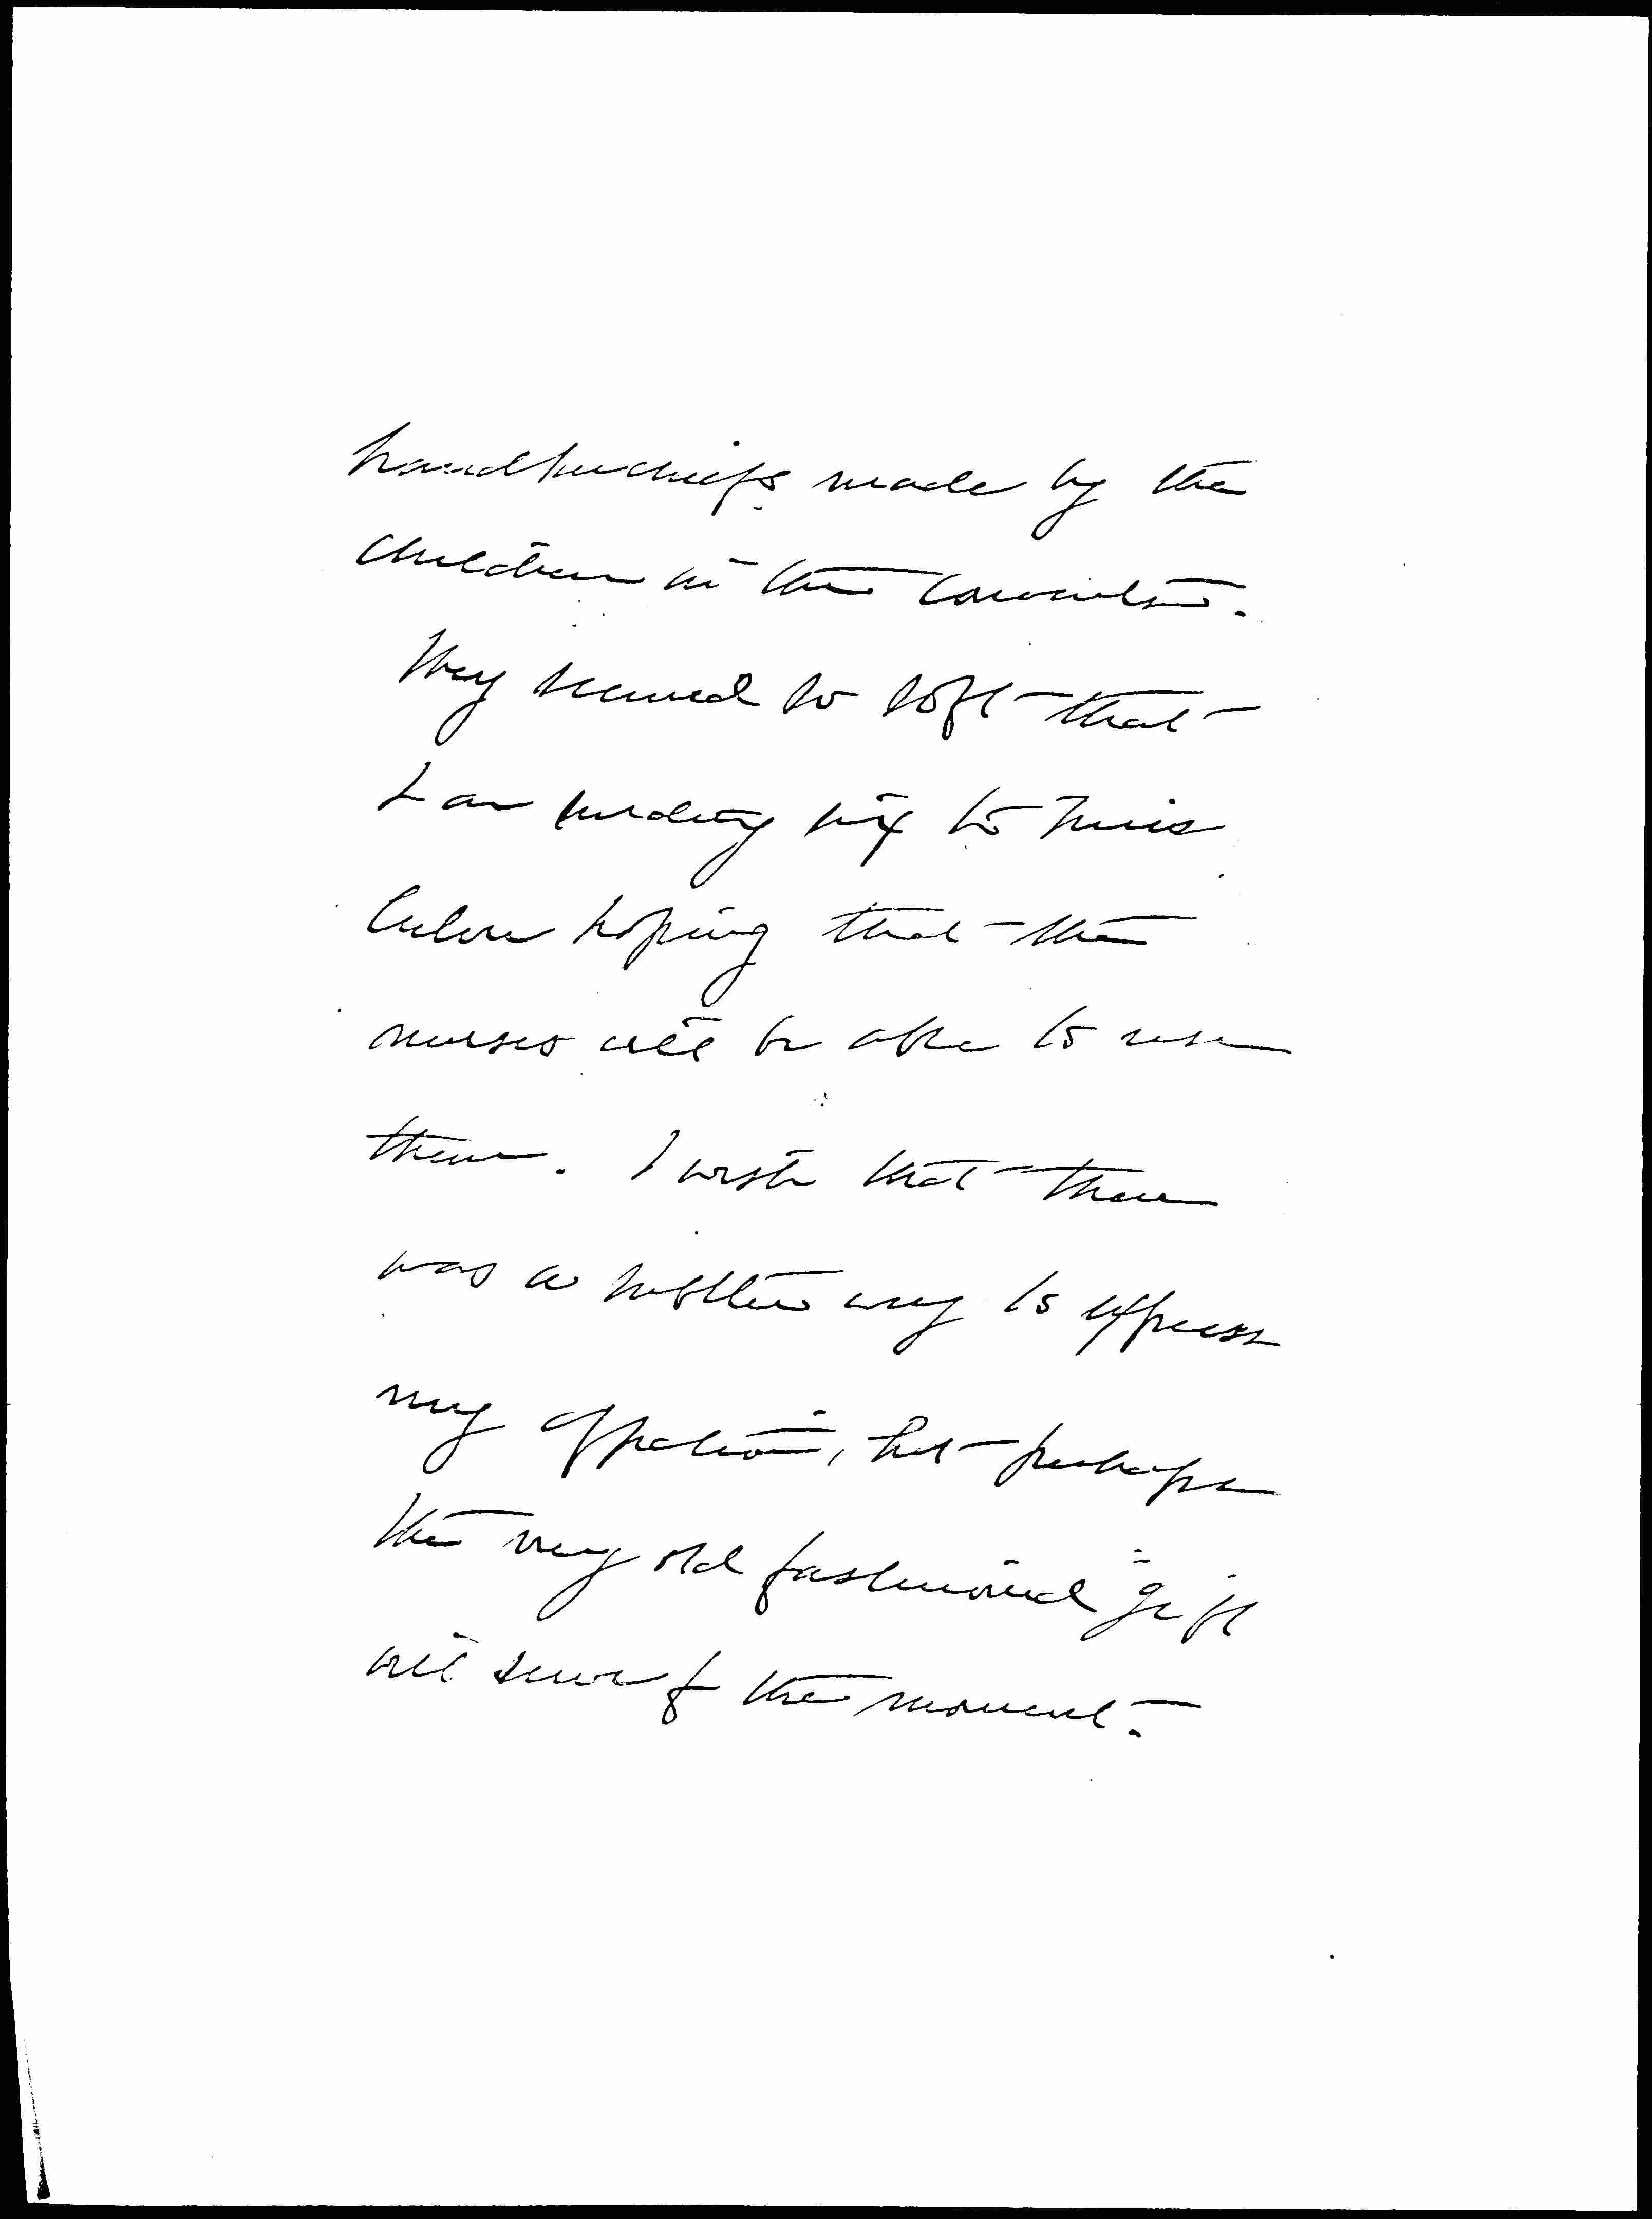 handkerchiefs made by the
children in the convents.
They seemed so soft that
I am sending six to Miss
hoping that the
nurses will be able to use
them. I wish that there
was a better way to express
my affection, but perhaps
the very old fashioned gift
will serve f the moment.